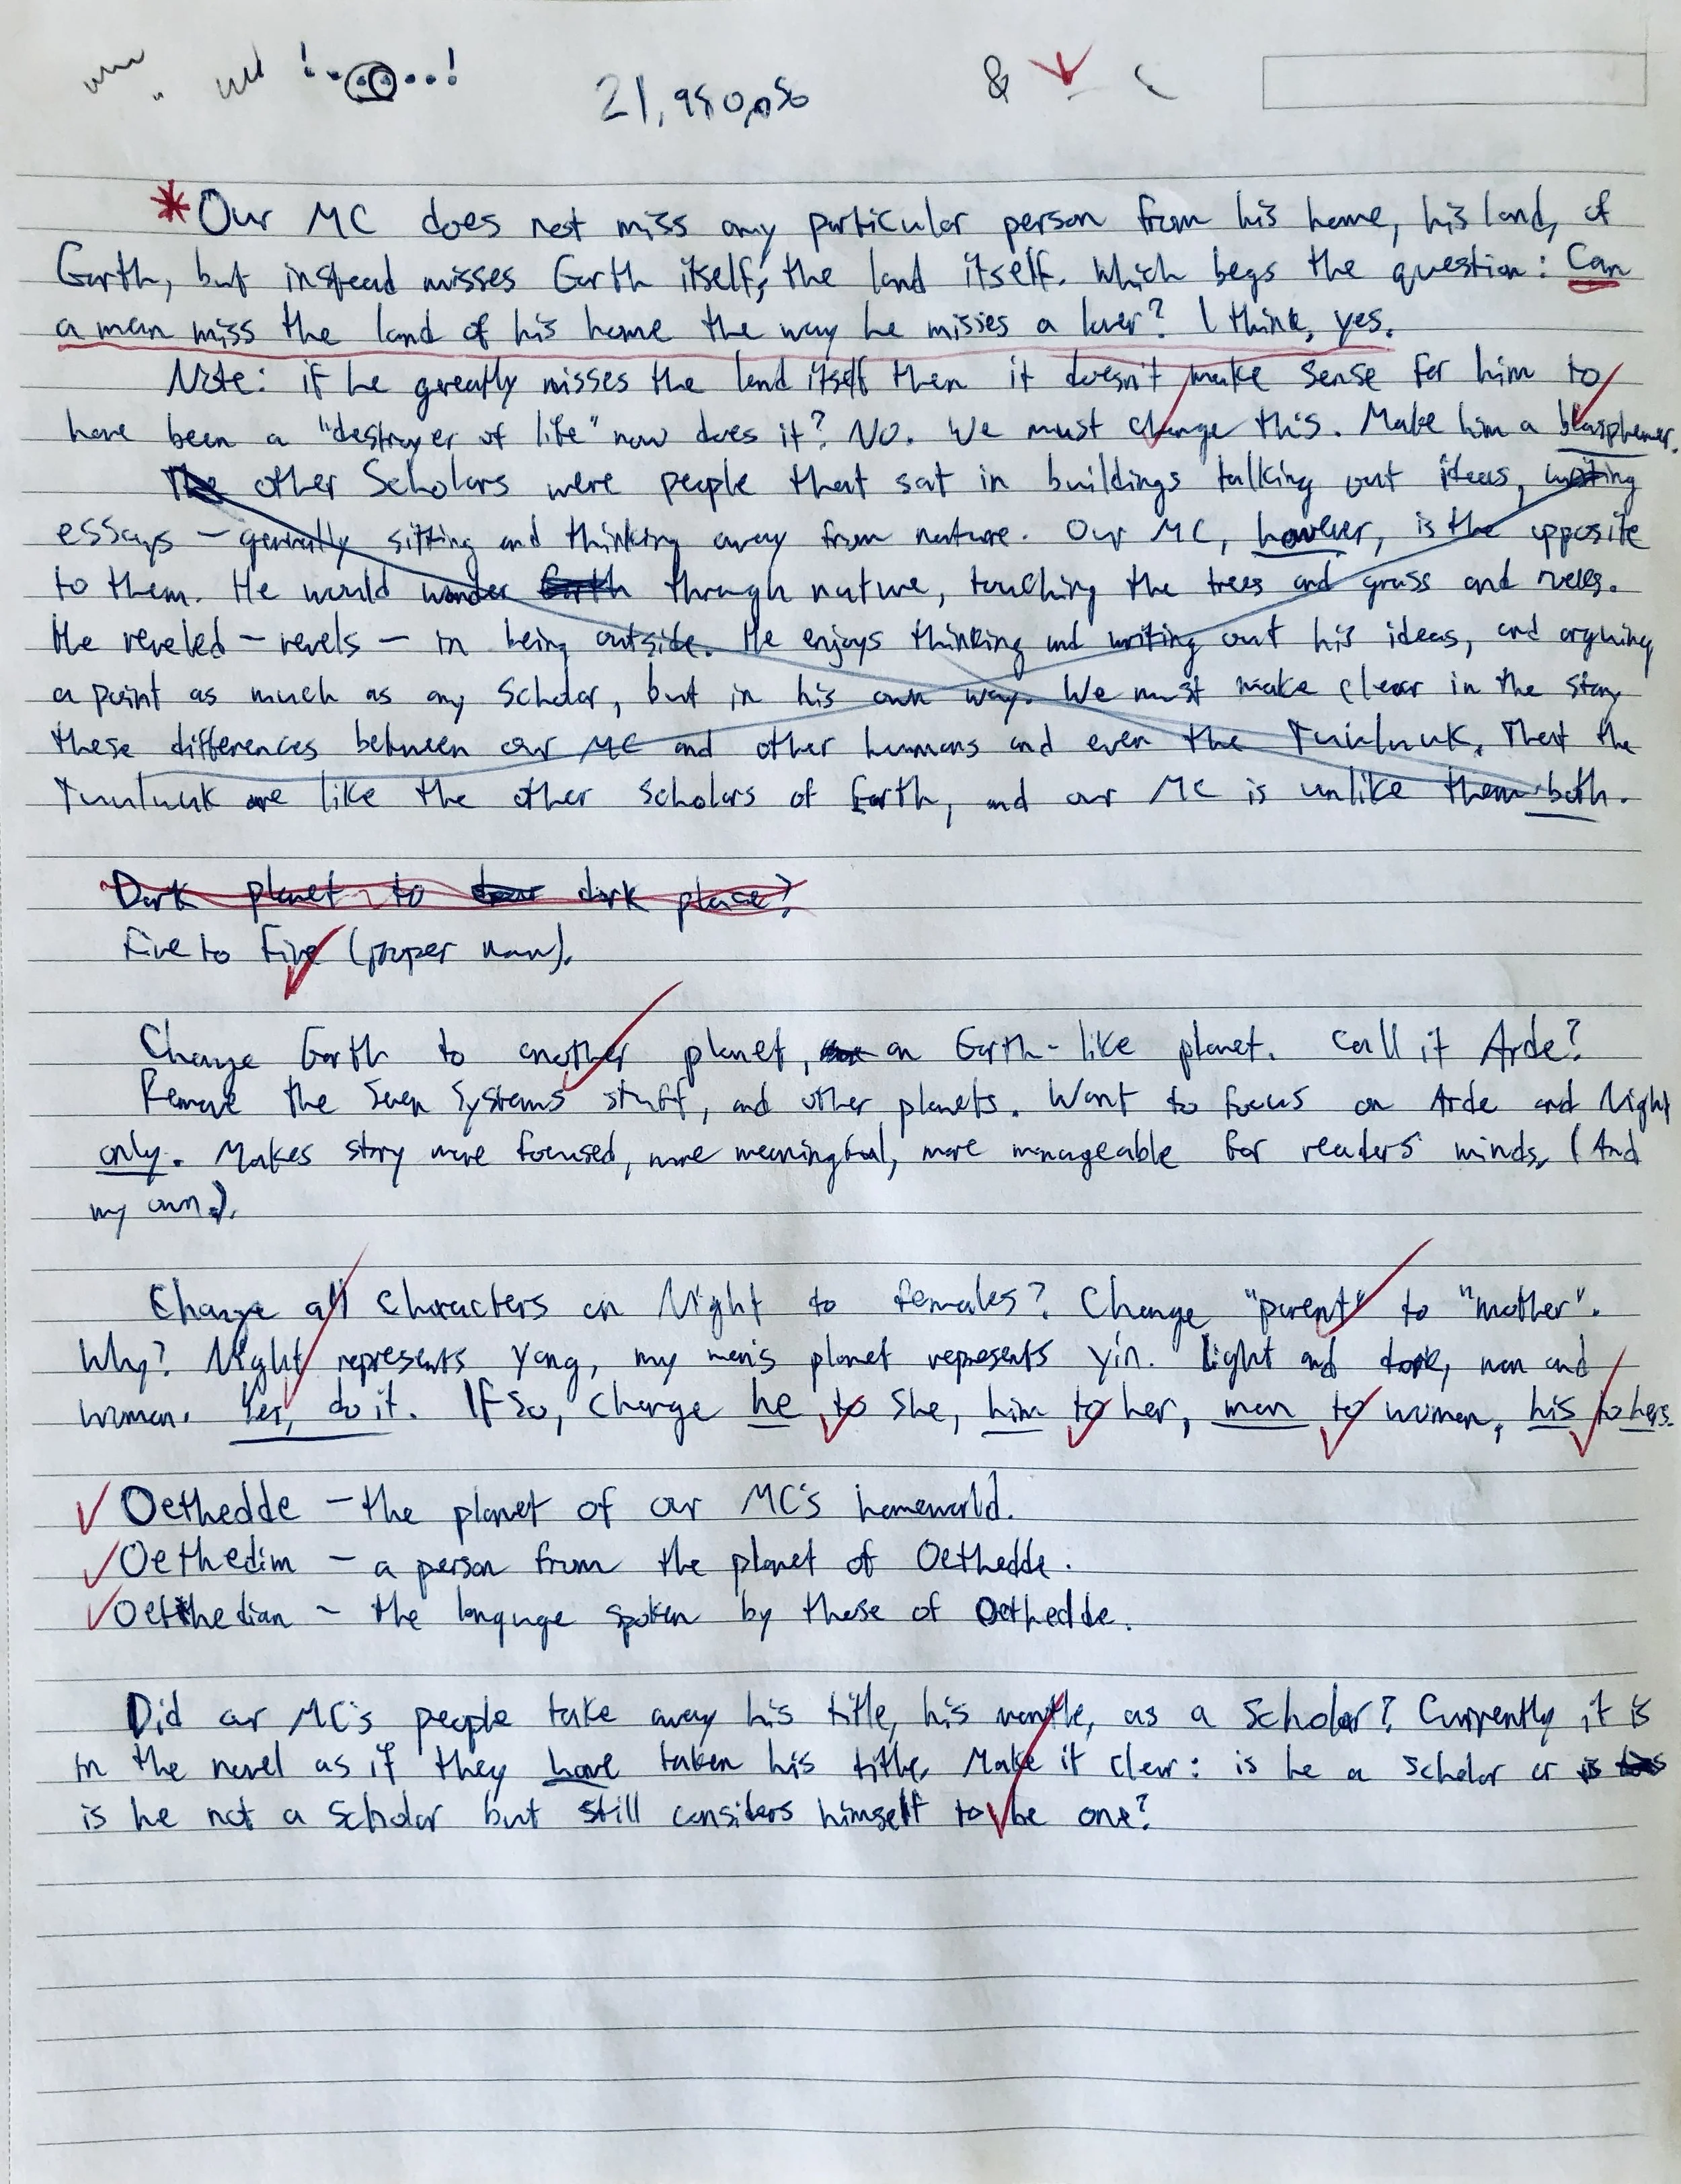 21,980,056
&
*Our MC does not miss any particular person from his home, his land, of
Earth, but instead misses Earth itself, the land itself. Which begs the question: Can
a man miss the land of his home the way he misses a lover? I think, yes.
Note: if he greatly misses the land itself then it doesn't make sense for him to
have been a "destroyer of life" now does it? No. We must change this. Make him a blasphemer.
The other Scholars were people that sat in buildings talking out ideas, writing
essays – generally sitting and thinking away from nature. Our MC, however, is the opposite
to them. He would wander Earth through nature, touching the trees and grass and
He reveled – revels – in being outside. He enjoys thinking and writing out his ideas, and arguing
a point as much as any Scholar, but in his own way. We must make clear in the story
these differences between our MC and other humans and even the That the
are like the other scholars of Earth, and our MC is unlike them both.
Dark planet to dark place?
Five to Five (proper noun).
Change Earth to another planet, an Earth-like planet. Call it Arde?
Remove the Seven Systems stuff, and other planets. Want to focus on Arde and Night
only. Makes story more focused, more meaningful, more manageable for readers' minds, (And
my own.).
Change all characters on Night to females? Change "parent" to "mother".
Why? Night represents Yang, my men's planet represents Yin. Light and dark, man and
woman. Yes, do it. If so, change he to she, him to her, men to women, his to hers.
Oethedde – the planet of our MC's homeworld.
Oethedim – a person from the planet of Oethedde.
Oethedian – the languge spoken by those of Oethedde.
Did our MC's people take away his title, his mantle, as a Scholar? Currently it is
in the novel as if they have taken his title. Make it clear: is he a Scholar or is
is he not a Scholar but still considers himself to be one?